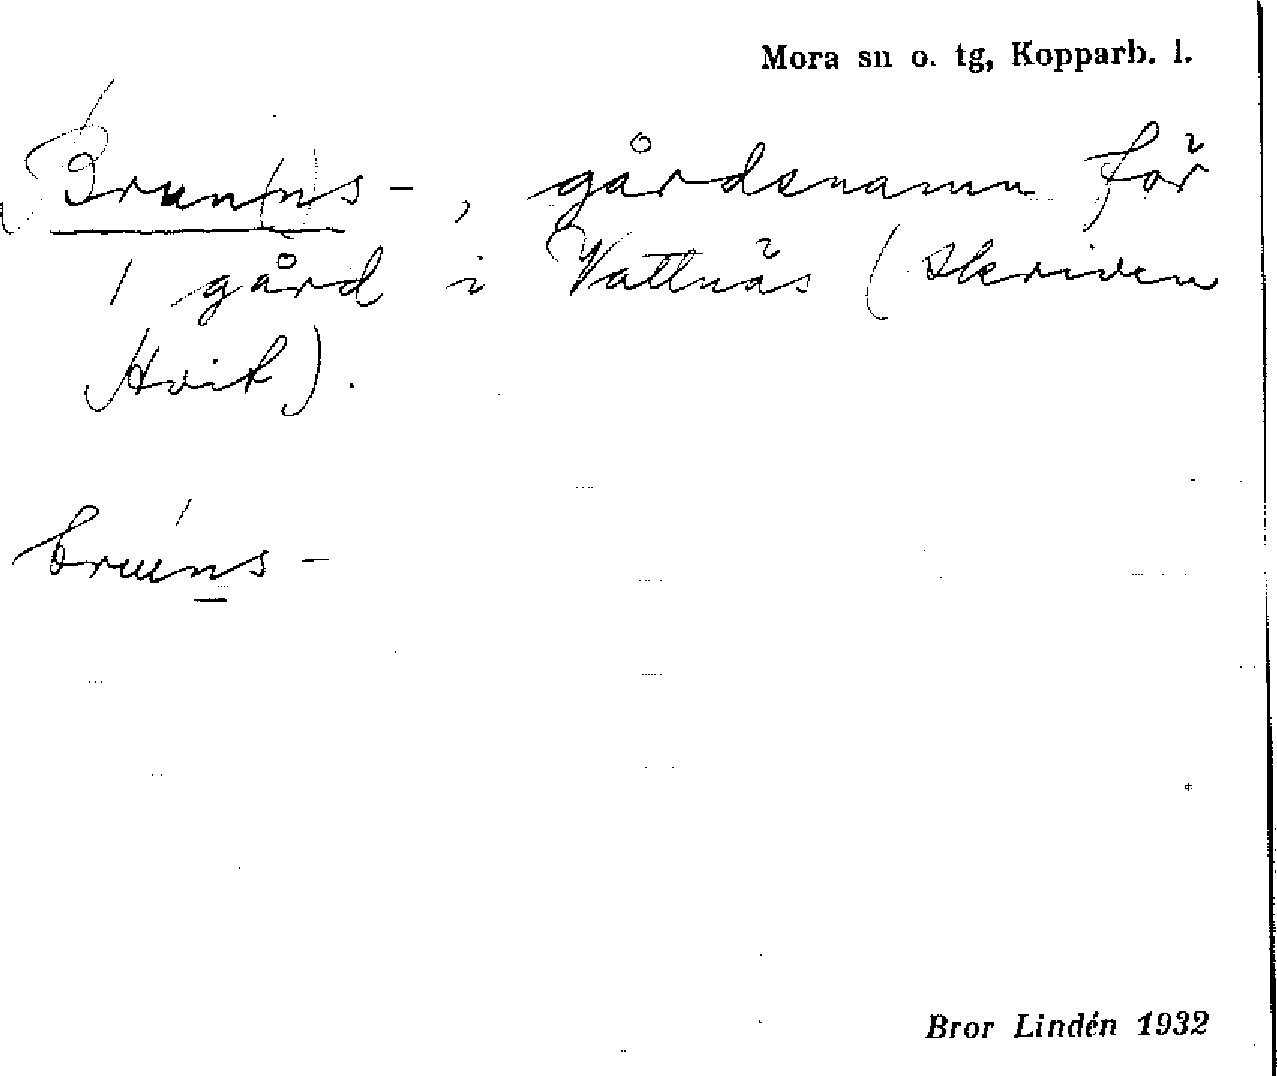 Mora sn o. tg, Kopparb. l.
Brun(n)s-, gårdsnamn för
1 gård i Vattnäs (skriven
Hvit).
bruns-
Bror Lindén 1932